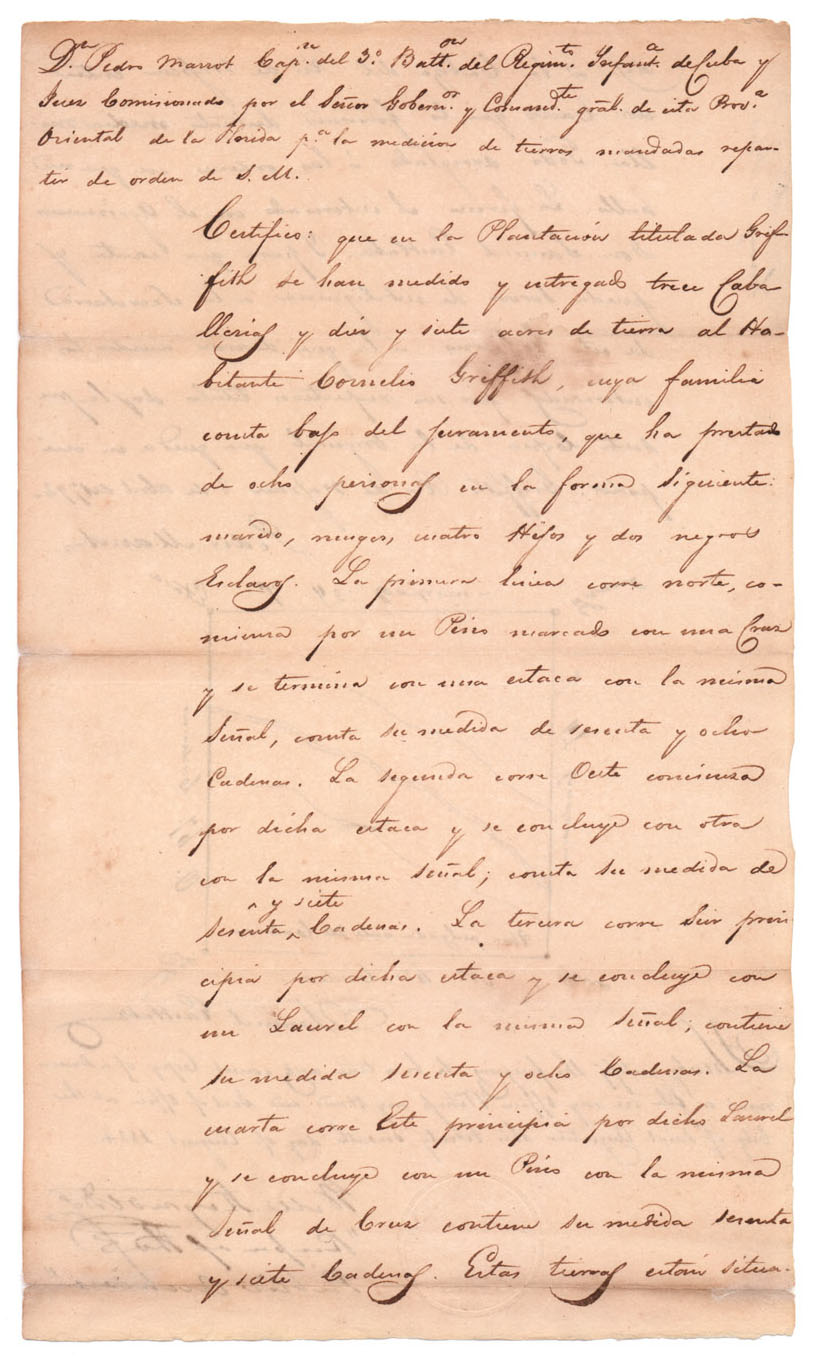 Dn. Pedro Marrot Capn. del 3o. Batton. del Regimto. Infanta. de Cuba y
Juez Comisionado por el Señor Gobernor. y Comandte. gral. de esta Prova.
Oriental de la Florida pa. la medicion de tierras mandadas repar-
tir de orden de S. M.
Certifico: que en la Plantación titulada Grif-
fith se han medido y entregado trece Caba
llerias y diez y siete acres de tierra al Ha-
bitante Cornelio Griffith, cuya familia
consta bajo del Juramento, que ha prestado
de ocho personas en la forma Siguiente:
marido, muger, cuatro Hijos y dos negros
Esclavos. La primera linea corre norte, co-
mienza por un Pino marcado con una Cruz
y se termina con una estaca con la misma
Señal, consta su medida de sesenta y ocho
Cadenas. La segunda corre Oeste comienza
por dicha estaca y se concluye con otra
con la misma señal; consta su medida de
^ y siete
Sesenta ^ Cadenas. La tercera corre Sur prin
cipia por dicha estaca y se concluye con
un Laurel con la misma señal; contiene
su medida sesenta y ocho Cadenas. La
cuarta corre Este principia por dicho Laurel
y se concluye con un Pino con la misma
Señal de Cruz contiene su medida sesenta
y siete Cadenas. Estas tierras están situa-